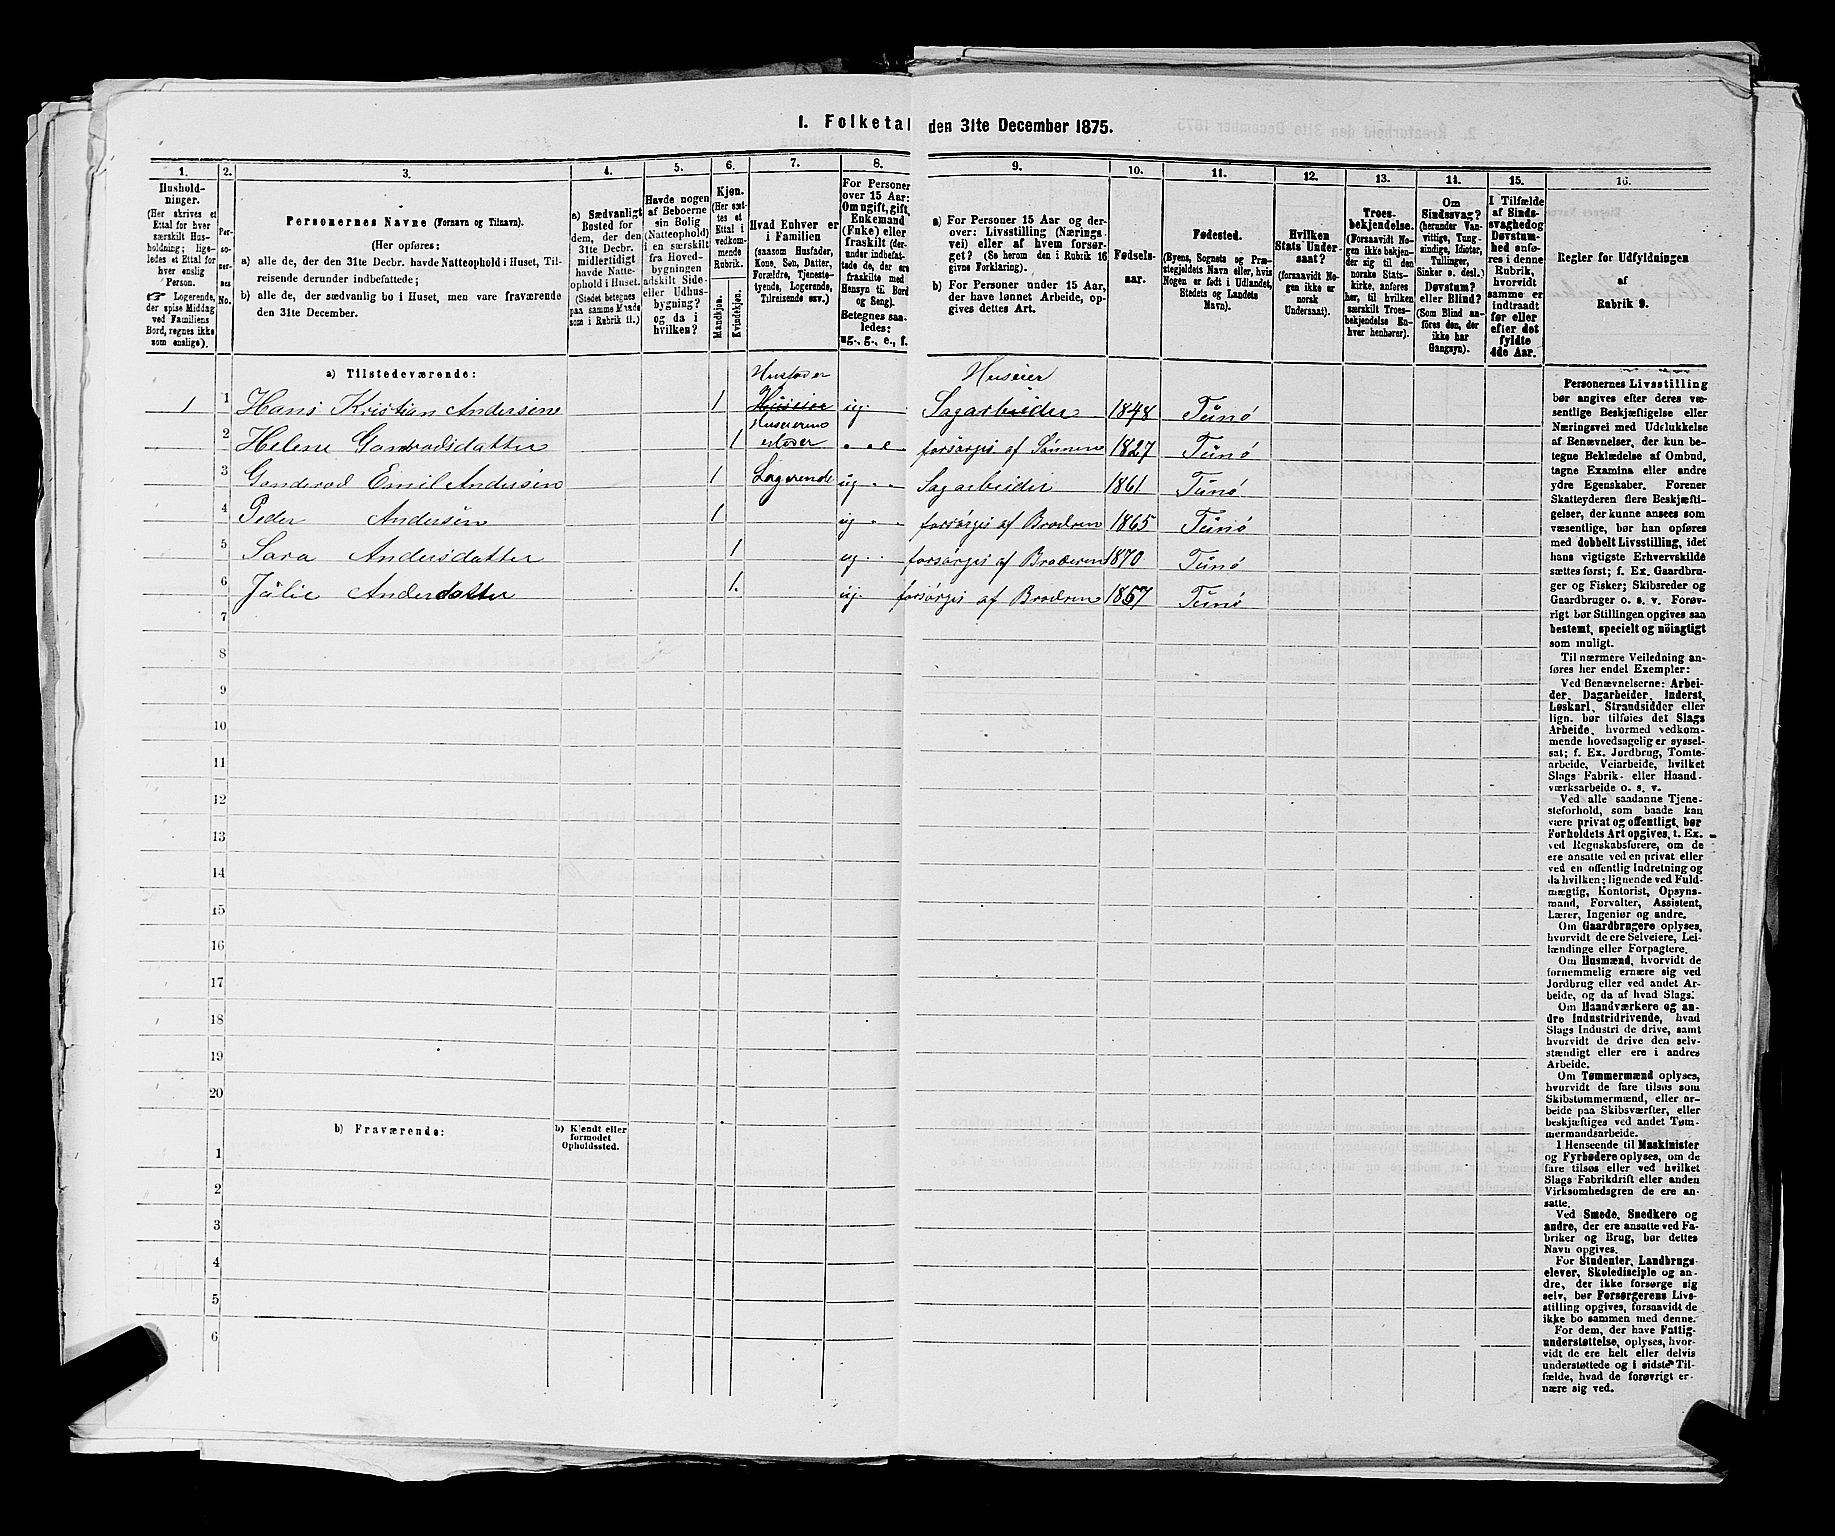 1. Folketal den 31te December 1875.
1. 2. 3. 4. 5. 6. 7. 8. 9. 10. 11. 12. 13. 14. 15. 16.
Hushold-
ninger.
(Her skrives et
Ettal for hver
særskilt Hus-
holdning; lige-
ledes et Ettal for
hver enslig
Person.
☞ Logerende,
der spise Middag
ved Familiens
Bord, regnes ikke
som enslige).
Per-
so-
ner-
nes
No.
Personernes Navne (Fornavn og Tilnavn).
(Her opføres:
a) alle de, der den 31te Decbr. havde Natteophold i Huset, Til-
reisende derunder indbefattede;
b) alle de, der sædvanlig bo i Huset, men vare fraværende
den 31te December.
a) Sædvanligt
Bosted for
dem, der den
31te Decbr.
midlertidigt
havde Natte-
ophold i Huset.
(Stedet betegnes
paa samme Maade
som i Rubrik 11.)
Havde nogen
af Beboerne
sin Bolig
(Natteophold)
i en særskilt
fra Hoved-
bygningen
adskilt Side-
eller Udhus-
bygning?
og da i
hvilken?
Kjøn.
(Her sæt-
tes et
Ettal i
vedkom-
mende
Rubrik.
Mandkjøn.
Kvindekjøn.
Hvad Enhver er
i Familien
(saasom Husfader,
Kone, Søn, Datter,
Forældre, Tjeneste-
tyende, Logerende,
Tilreisende osv.)
For Personer
over 15 Aar:
Om ugift, gift,
Enkemand
(Enke) eller
fraskilt (der-
under indbefat-
tede de, der ere
fraskilte med
Hensyn til Bord
og Seng).
Betegnes saa-
ledes:
ug., g., e., f.
a) For Personer 15 Aar og der-
over: Livsstilling (Nærings-
vei) eller af hvem forsør-
get? (Se herom den i Rubrik 16
givne Forklaring).
b) For Personer under 15 Aar,
der have lønnet Arbeide, op-
gives dettes Art.
Fødsels-
aar.
Fødested.
(Byens, Sognets og Præ-
stegjeldets Navn eller, hvis
Nogen er født i Udlandet,
Stedets og Landets
Navn).
Hvilken
Stats Under-
saat?
(forsaavidt No-
gen ikke er
norsk
Undersaat).
Troes-
bekjendelse.
(Forsaavidt No-
gen ikke bekjen-
der sig til den
norske Stats-
kirke, anføres
her, til hvilken
særskilt Troes-
bekjendelse En-
hver henhører).
Om
Sindssvag?
(herunder Van-
vittige, Tung-
sindige, Idioter,
Tullinger,
Sinker o. desl.)
Døvstum?
eller Blind?
(Som Blind an-
føres den, der
ikke har
Gangsyn).
I Tilfælde
af Sinds-
svaghed og
Døvstum-
hed anfø-
res i denne
Rubrik,
hvorvidt
samme er
indtraadt
før eller
efter det
fyldte
4de Aar.
Regler for Udfyldningen
af
Rubrik 9.
a) Tilstedeværende:
Husfader Huseier
1 1 Hans Kristian Andersene 1 Huseier ug. Sagarbeider 1848 Tünø
Huseierens
2 Helene Gonderodsdatter 1 Moer e forsørges af Sønnen 1827 Tünø
3 Gonderod Emil Andersen 1 Logerende ug Sagarbeider 1861 Tünø
4 Peder Andersen 1 ug forsørges af Brodren 1865 Tünø
5 Sara Andersdatter 1 ug forsørges af Broderen 1870 Tünø
6 Jülie Andersdatter 1. ug. forsørges af Brodren 1867 Tünø
7
8
9
10
11
12
13
14
15
16
17
18
19
20
b) Fraværende:
b) Kjendt eller
formodet
Opholdssted.
1
2
3
4
5
6
Personernes Livsstilling
bør angives efter deres væ-
sentlige Beskjæftigelse eller
Næringsvei med Udelukkelse
af Benævnelser, der kun be-
tegne Beklædelse af Ombud,
tagne Examina eller andre
ydre Egenskaber. Forener
Skatteyderen flere Beskjæfti-
gelser, der kunne ansees som
væsentlige, bør han opføres
med dobbelt Livsstilling, idet
hans vigtigste Erhvervskilde
sættes først; f. Ex. Gaardbru-
ger og Fisker; Skibsreder og
Gaardbruger o. s. v. Forøv-
rigt bør Stillingen opgives saa
bestemt, specielt og nöiagtigt
som muligt.
Til nærmere Veiledning an-
føres her endel Exempler:
Ved Benævnelserne: Arbei-
der, Dagarbeider, Inderst,
Løskarl, Strandsidder eller
lign. bør tilføies det Slags
Arbeide, hvormed vedkom-
mende hovedsagelig er syssel-
sat; f. Ex. Jordbrug, Tomte-
arbeide, Veiarbeide, hvilket
Slags Fabrik- eller Haand-
værksarbeide o. s. v.
Ved alle saadanne Tjene-
steforhold, som baade kan
være privat og offentligt, bør
Forholdets Art opgives, t. Ex.
ved Regnskabsførere, om de
ere ansatte ved en privat eller
ved en offentlig Indretning og
da hvilken; lignende ved Fuld-
mægtig, Kontorist, Opsyns-
mand, Forvalter, Assistent,
Lærer, Ingeniør og andre.
Om Gaardbrugere oplyses,
hvorvidt de ere Selveiere, Lei-
lændinge eller Forpagtere.
Om Husmænd, hvorvidt de
fornemmelig ernære sig ved
Jordbrug eller ved andet Ar-
beide, og da af hvad Slags.
Om Haandværkere og an-
dre Industridrivende, hvad
Slags Industri de drive, samt
hvorvidt de drive den selv-
stændigt eller ere i andres
Arbeide.
Om Tømmermænd oplyses,
hvorvidt de fare tilsøs som
Skibstømmermænd, eller ar-
beide paa Skibsværfter, eller
beskjæftiges ved andet Tøm-
mermandsarbeide.
I Henseende til Maskinister
og Fyrbødere oplyses, om de
fare tilsøs eller ved hvilket
Slags Fabrikdrift eller anden
Virksomhedsgren de ere an-
satte.
Ved Smede, Snedkere og
andre, der ere ansatte ved Fa-
briker og Brug, bør dettes
Navn opgives.
For Studenter, Landbrugs-
elever, Skoledisciple og an-
dre, der ikke forsørge sig
selv, bør Forsørgerens Livs-
stilling opgives, forsaavidt de
ikke bo sammen med denne.
For dem, der have Fattig-
understøttelse, oplyses, hvor-
vidt de ere helt eller delvis
understøttede og i sidste Til-
fælde, hvad de forøvrigt er-
nære sig ved.